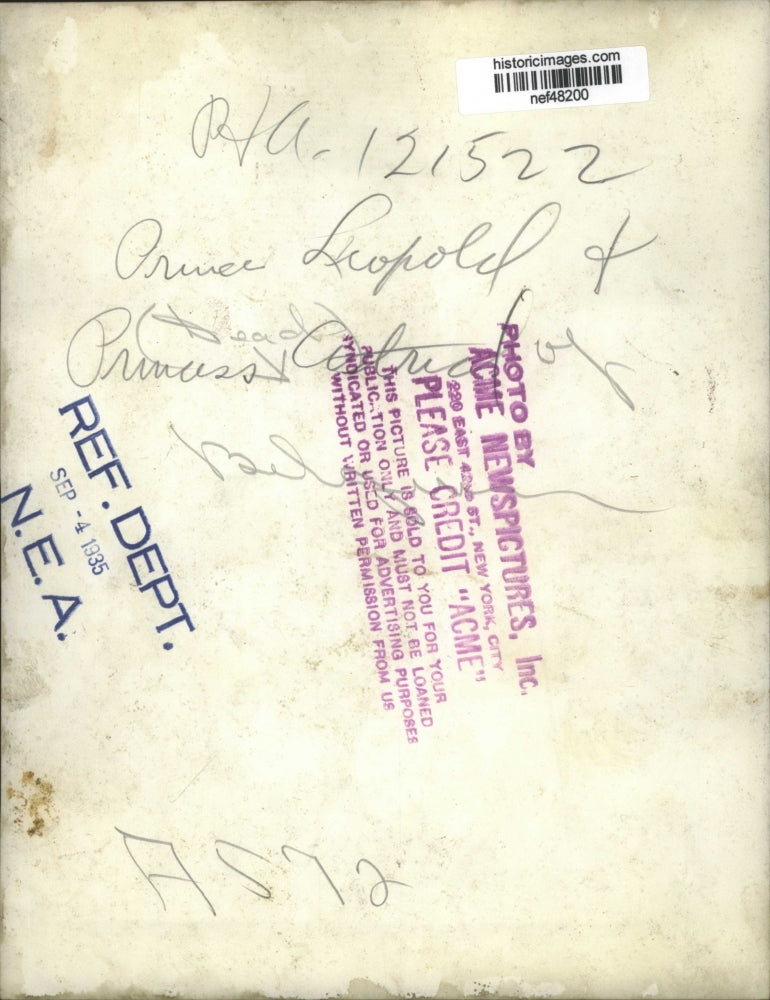 historicimages.com
nef48200
121522
Prince Leopold &
(Dead)
Princess Astrid of
Belgium
REF. DEPT.
SEP -4 1935
N.E.A.
PHOTO BY
ACME NEWSPICTURES, Inc.
220 EAST 42ND ST., NEW YORK, CITY
PLEASE CREDIT "ACME"
THIS PICTURE IS SOLD TO YOU FOR YOUR
PUBLIC..TION ONLY AND MUST NOT BE LOANED
SYNDICATED OR USED FOR ADVERTISING PURPOSES
WITHOUT WRITTEN PERMISSION FROM US